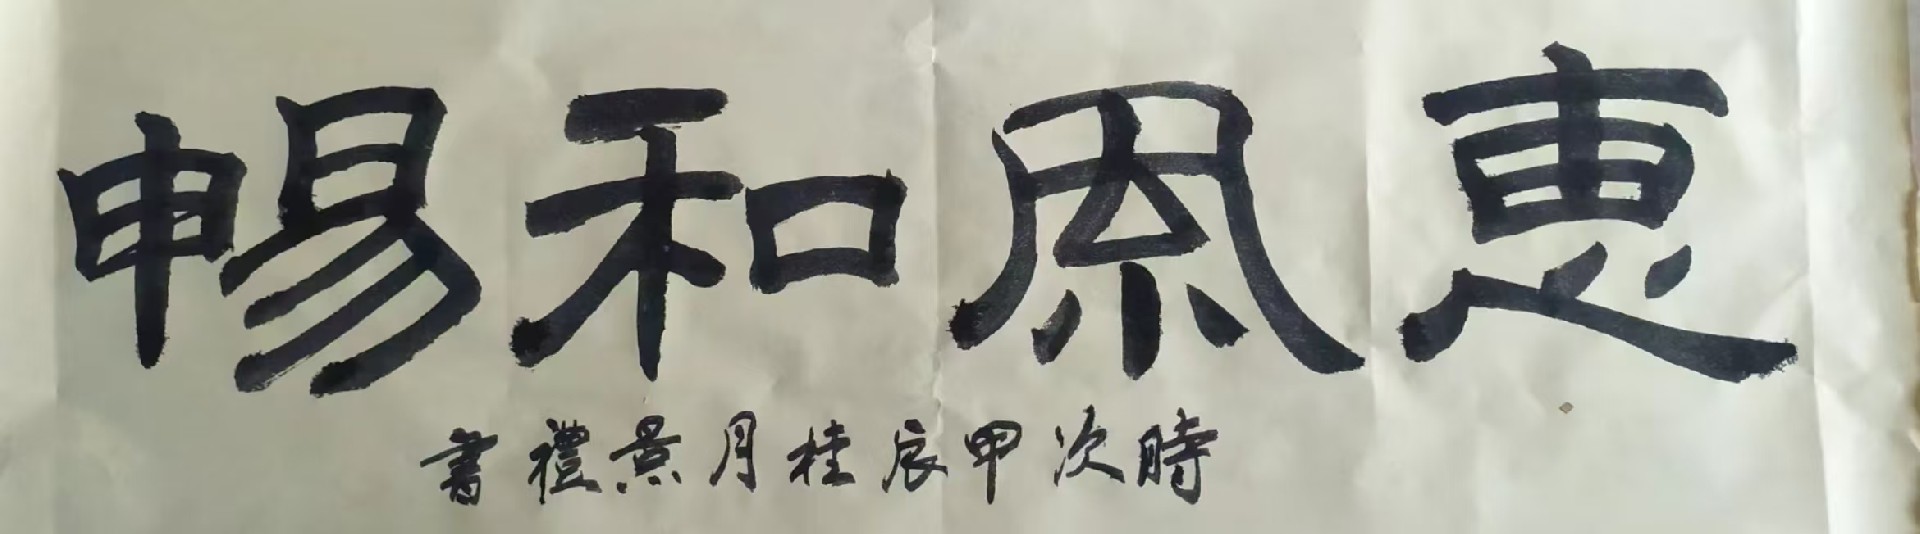 惠風和暢
時次甲辰桂月景禮書